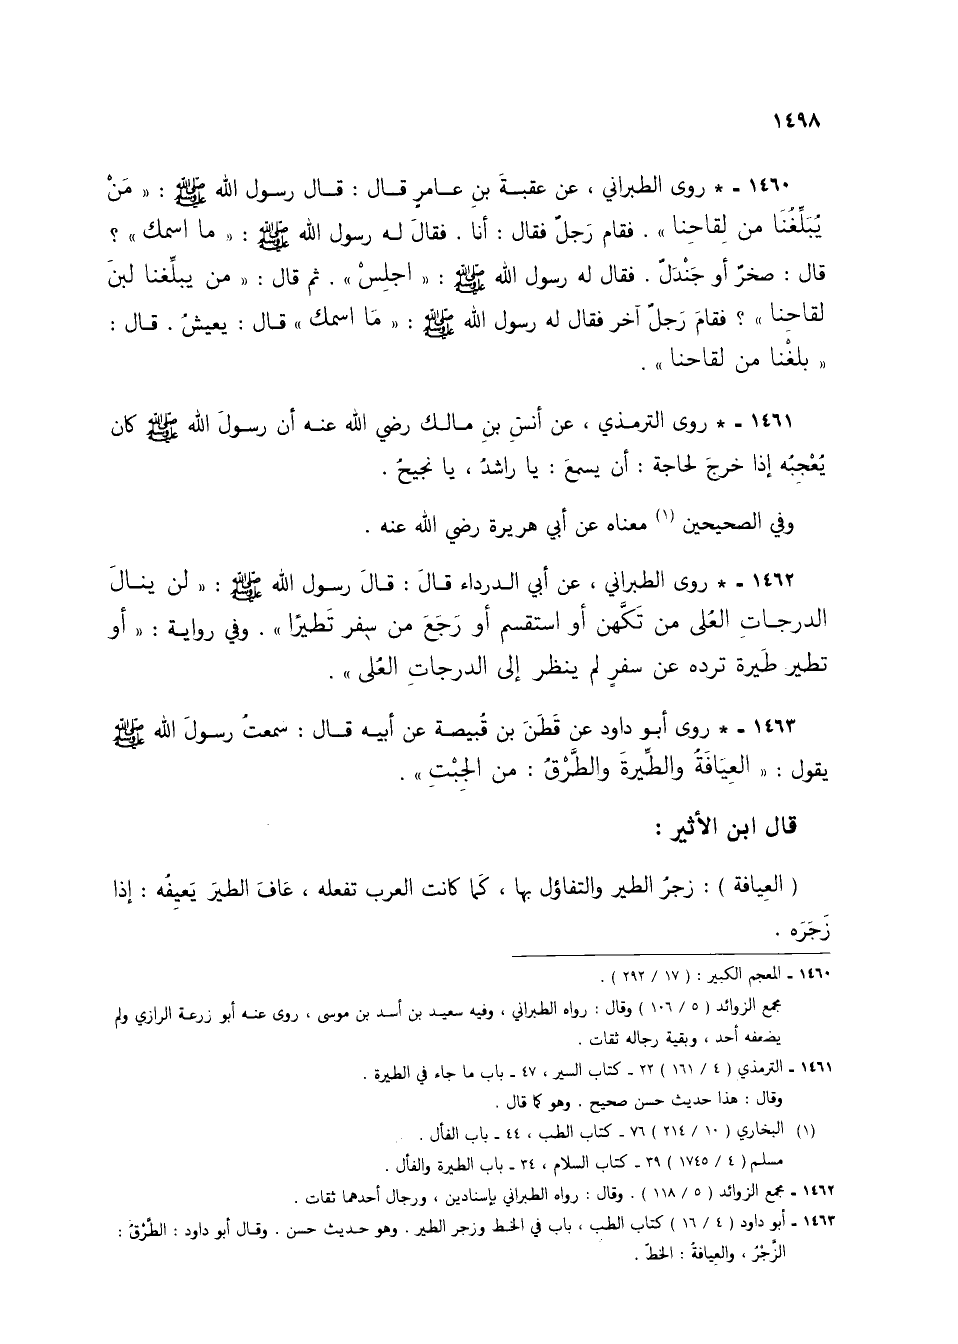 ١٤٩٨
١٤٦٠ ـ * روى الطبراني ، عن عقبةَ بنِ عـامرٍ قـال : قـال رسـول الله ﷺ : « مَنْ
يُبَلِّغُنَا من لِقاحِنا » . فقام رَجلٌ فقال : أنا . فقالَ لـه رسول الله ﷺ : « ما اسمك » ؟
قال : صخرٌ أو جَنْدَلٌ . فقال له رسول الله ﷺ : « اجلِسْ » . ثم قال : « من يبلِّغنا لبنَ
لقاحِنا » ؟ فقامَ رَجلٌ آخر فقال له رسول الله ﷺ : « مَا اسمك » قـال : يعيشُ . قـال :
« بلغْنا من لقاحنا » .
١٤٦١ ـ * روى الترمـذي ، عن أنسِ بنِ مـالـك رضي الله عنـه أن رسـولَ الله ﷺ كان
يُعْجِبُه إذا خرجَ لحاجة : أن يسمعَ : يا راشدُ ، يا نجيحُ .
وفي الصحيحين (١) معناه عن أبي هريرة رضي الله عنه .
١٤٦٢ ـ * روى الطبراني ، عن أبي الـدرداء قـالَ : قـالَ رسـول الله ﷺ : « لن ينـالَ
الدرجـاتِ العُلى من تَكَّهن أو استقسم أو رَجَعَ من سِفر تَطيرًا » . وفي روايـة : « أو
تطير طَيرة ترده عن سفرٍ لم ينظر إلى الدرجاتِ العُلى » .
١٤٦٣ ـ * روى أبـو داود عن قَطَنَ بن قُبيصـة عن أبيـه قـال : سمعتُ رسـولَ الله ﷺ
يقول : « العِيَافَةُ والطِّيرةَ والطَّرْقُ : من الجِبْتِ » .
قال ابن الأثير :
( العِيافة ) : زجرُ الطير والتفاؤل بها ، كَما كانت العرب تفعله ، عَافَ الطيرَ يَعيفُه : إذا
زَجَرَه .
١٤٦٠ ـ المعجم الكبير : ( ١٧ / ٢٩٢ ) .
مجمع الزوائد ( ٥ / ١٠٦ ) وقال : رواه الطبراني ، وفيه سعيـد بن أسـد بن موسى ، روى عنـه أبو زرعـة الرازي ولم
يضعفه أحد ، وبقية رجاله ثقات .
١٤٦١ ـ الترمذي ( ٤ / ١٦١ ) ٢٢ ـ كتاب السير ، ٤٧ ـ باب ما جاء في الطيرة .
وقال : هذا حديث حسن صحيح . وهو كما قال .
(١) البخاري ( ١٠ / ٢١٤ ) ٧٦ ـ كتاب الطب ، ٤٤ ـ باب الفأل .
مسلم ( ٤ / ١٧٤٥ ) ٣٩ ـ كتاب السلام ، ٣٤ ـ باب الطيرة والفأل .
١٤٦٢ ـ مجمع الزوائد ( ٥ / ١١٨ ) . وقال : رواه الطبراني بإسنادين ، ورجال أحدهما ثقات .
١٤٦٣ ـ أبو داود ( ٤ / ١٦ ) كتاب الطب ، باب في الخـط وزجر الطير . وهو حـديث حسن . وقـال أبو داود : الطَّرْقَ :
الزَّجْرُ ، والعِيافةُ : الخطّ .